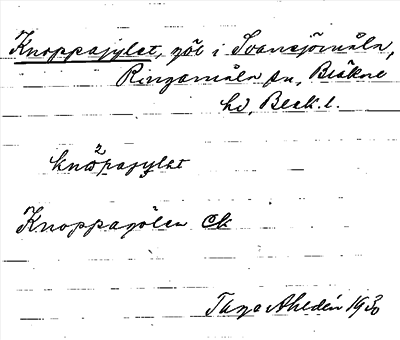 Knoppasjylet, göl i Svansjömåla,
Ringamåla sn, Bräkne
hd, Blek. l.
knö²pajylet
Knoppagölen Ek
Tage Ahldén 1930